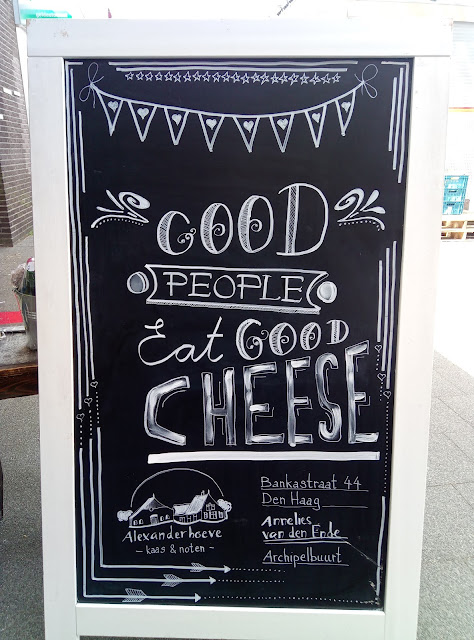 GOOD
PEOPLE
Eat GOOD
CHEESE
Alexanderhoeve
- kaas & noten -
Bankastraat 44
Den Haag
Annelies
van den Ende
Archipelbuurt